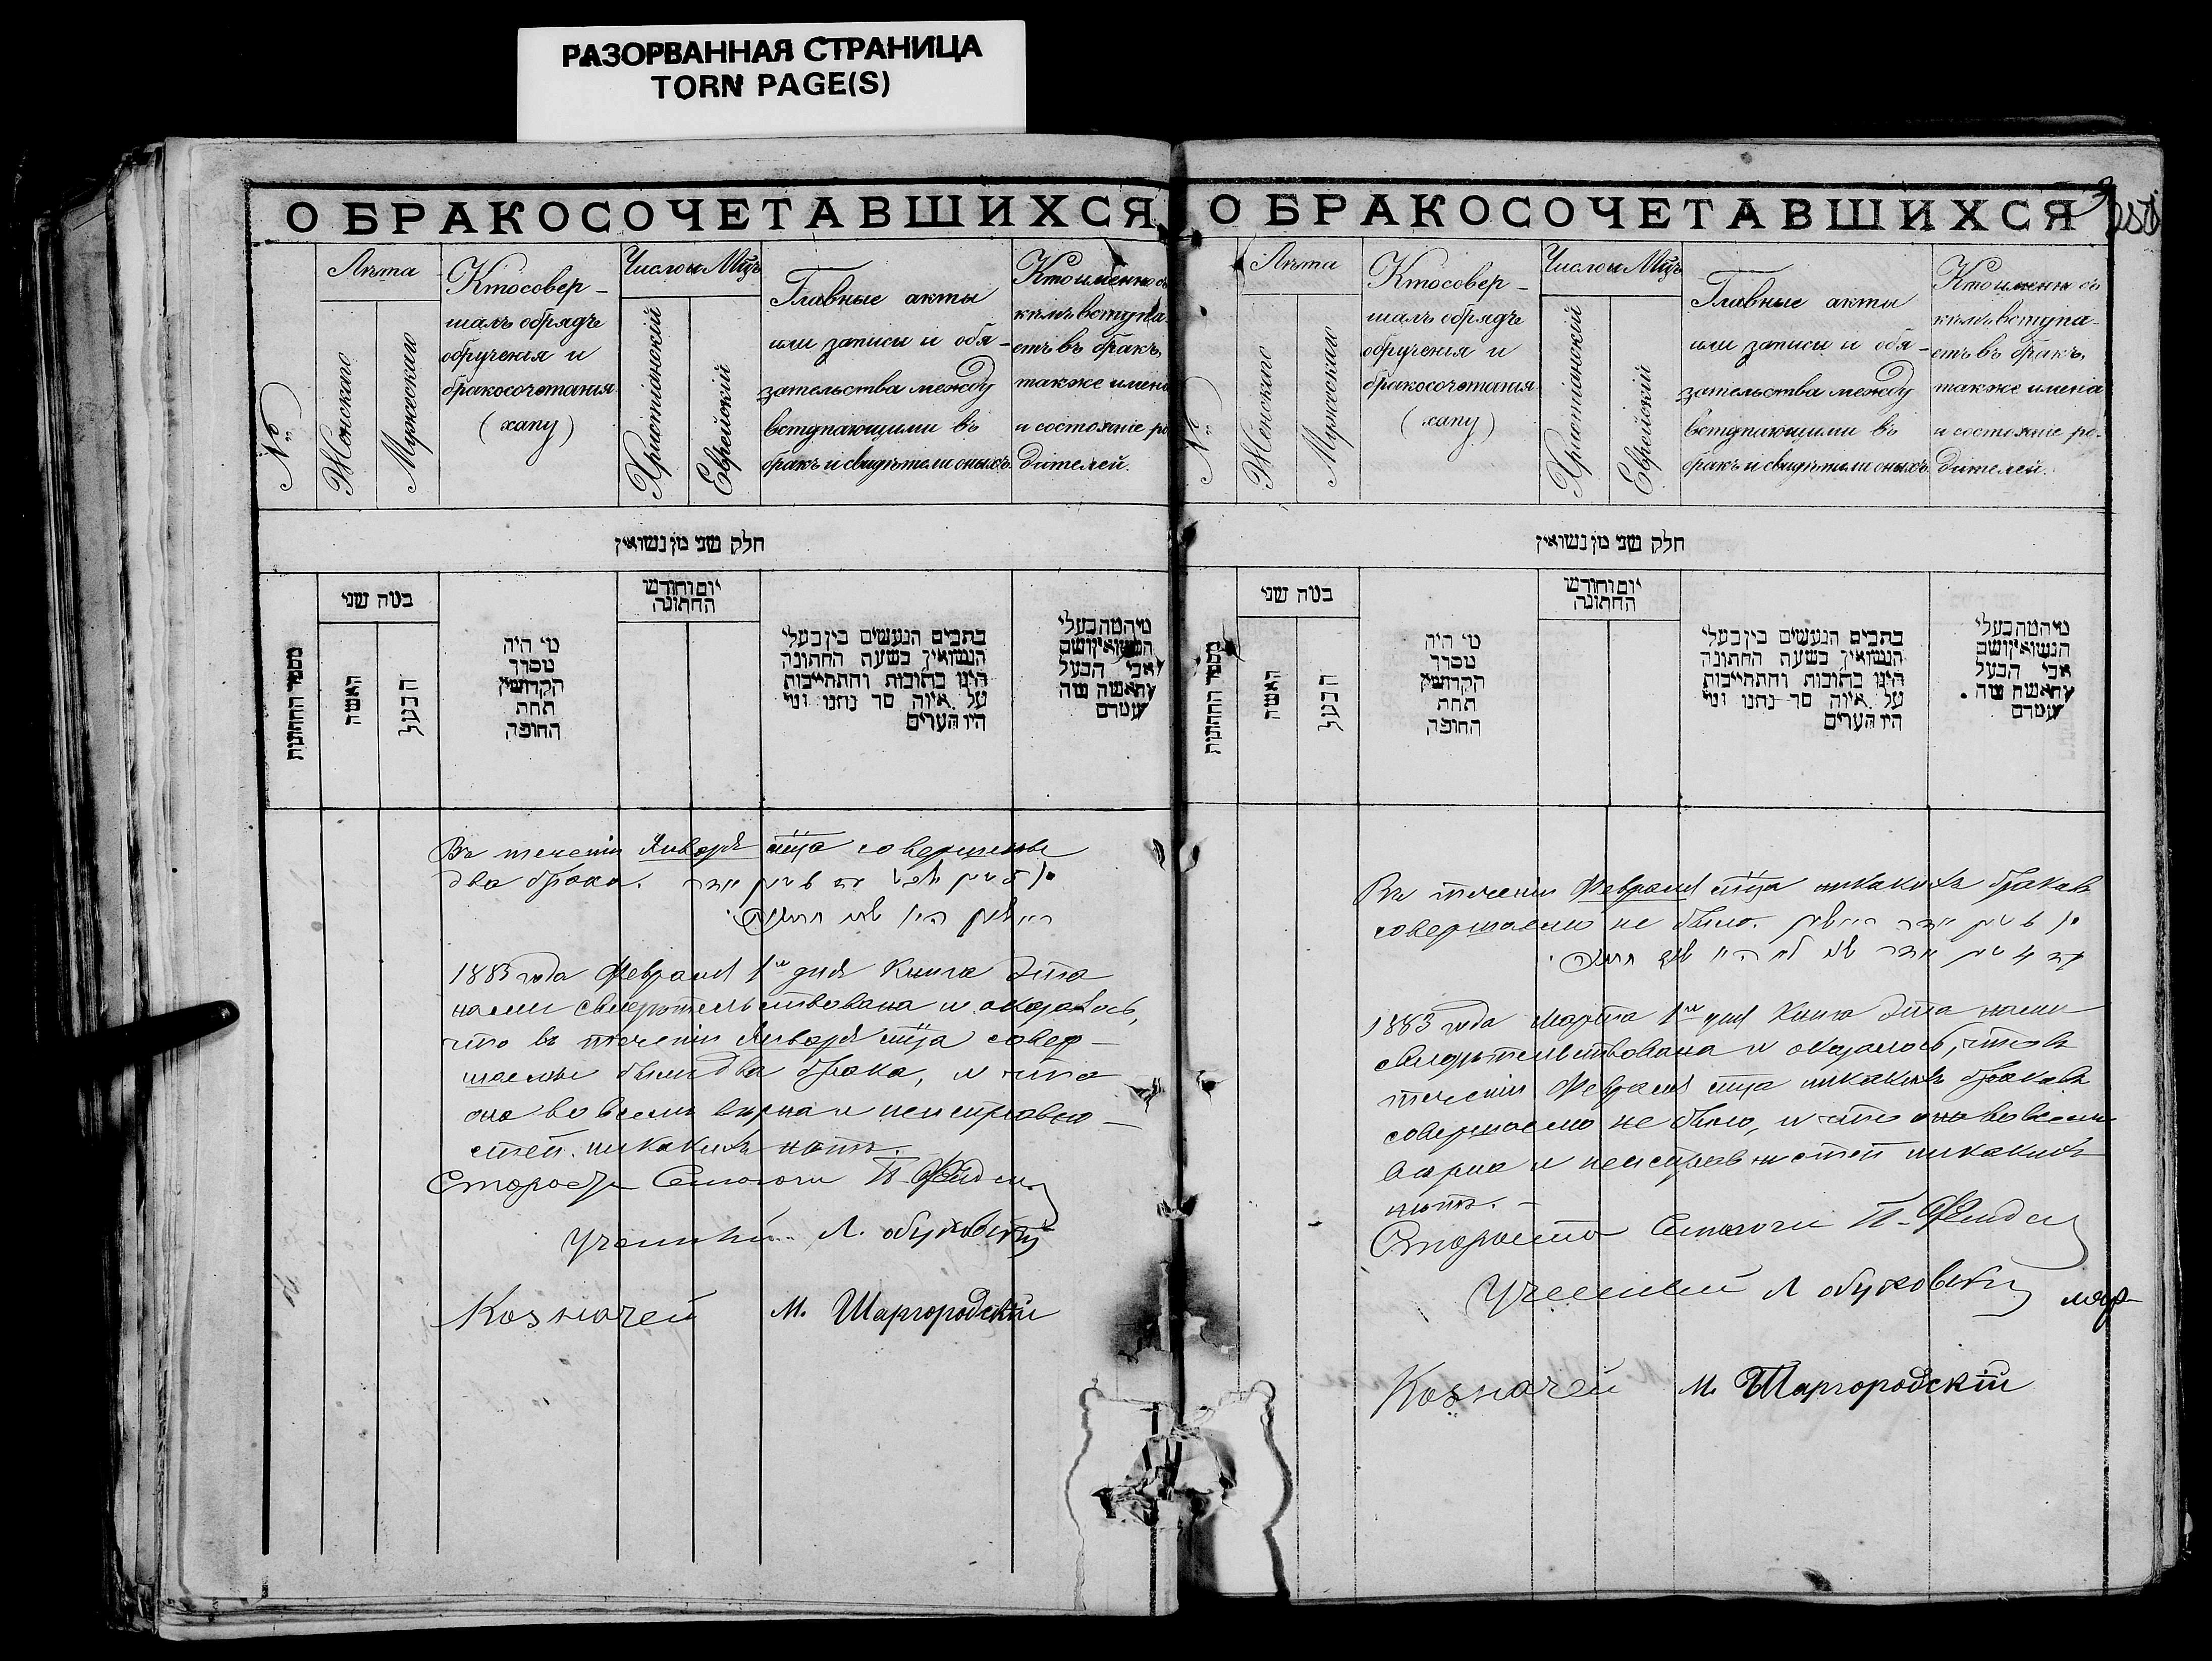 РАЗОРВАННАЯ СТРАНИЦА
TORN PAGE(S)
О БРАКОСОЧЕТАВШИХСЯ
№
Лѣта
Женскаго
Мужескаго
Ктосовер-
шалъ обрядъ
обрученія и
бракосочетанія
(хапу)
Число и Мцъ
Христіанскій
Еврейскій
Главные акты
или записи и обя-
зательства между
вступающими въ
бракъ и свидѣтели оныхъ.
Кто именно съ
кѣмъ вступа-
етъ въ бракъ,
также имена
и состояніе ро
дителей.
חלק שני מן נשואין
מספר החתונות
כמה שני
האשה
הבעל
מי היה
מסדר
הקדושין
תחת
החופה
יום וחודש
החתונה
כתבים הנעשים בין בעלי
הנשואין בשעת החתונה
היינו כתובות והתחייבות
על איזה סך נתנו ומי
היו העדים
מי המה בעלי
הנשואין ושם
אבי הבעל
והאשה מה
מעמדם
Въ теченіи Января мца совершены
два брака.
1883 года Февраля 1го дня Книга Эта
нами свидѣтельствована и оказалось,
что въ теченіи Января мца совер-
шаемы были два брака, и что
она во всемъ вѣрна и неисправно-
стей никакихъ нѣтъ.
Староста Синагоги
Ученый Л. Обуховскій
Казначей М. Шаргородскій
О БРАКОСОЧЕТАВШИХСЯ
№
Лѣта
Женскаго
Мужескаго
Ктосовер-
шалъ обрядъ
обрученія и
бракосочетанія
(хапу)
Число и Мцъ
Христіанскій
Еврейскій
Главные акты
или записи и обя-
зательства между
вступающими въ
бракъ и свидѣтели оныхъ.
Кто именно съ
кѣмъ вступа-
етъ въ бракъ,
также имена
и состояніе ро-
дителей.
חלק שני מן נשואין
מספר החתונות
כמה שני
האשה
הבעל
מי היה
מסדר
הקדושין
תחת
החופה
יום וחודש
החתונה
כתבים הנעשים בין בעלי
הנשואין בשעת החתונה
היינו כתובות והתחייבות
על איזה סך נתנו ומי
היו העדים
מי המה בעלי
הנשואין ושם
אבי הבעל
והאשה מה
מעמדם
Въ теченіи Февраля мца никакихъ браковъ
совершаемо не было.
1883 года Марта 1го дня Книга Эта нами
свидѣтельствована и оказалось, что въ
теченіи Февраля мца никакихъ браковъ
совершаемо не было, и что она во всемъ
вѣрна и неисправностей никакихъ
нѣтъ. -
Староста Синагоги
Ученый Л Обуховскій
Казначей М. Шаргородскій